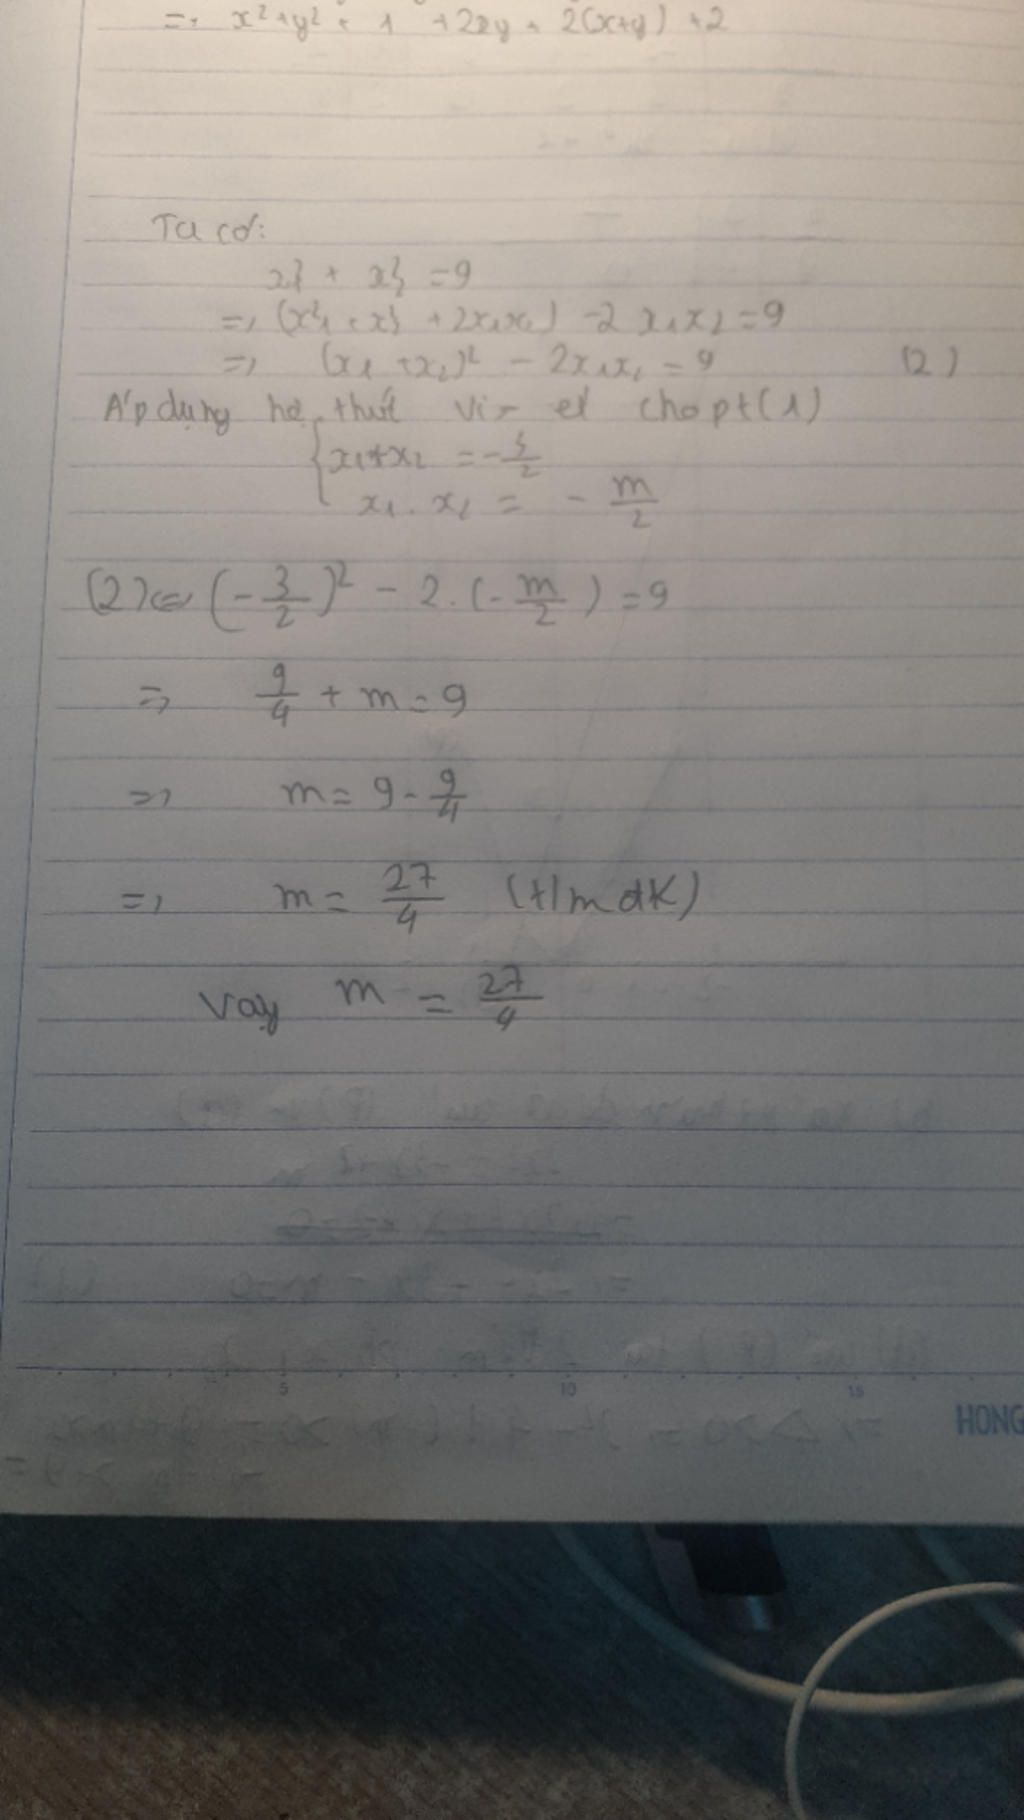 => x² + y² + 1 + 2xy + 2(x+y) + 2
Ta có:
x₁² + x₂² = 9
=> (x₁² + x₂² + 2x₁x₂) - 2x₁x₂ = 9
=> (x₁ + x₂)² - 2x₁x₂ = 9 (2)
Áp dụng hệ thức Vi-et cho pt(1)
{ x₁+x₂ = -3/2
x₁.x₂ = -m/2
(2) <=> (-3/2)² - 2.(-m/2) = 9
=> 9/4 + m = 9
=> m = 9 - 9/4
=> m = 27/4 (t/m đk)
Vay m = 27/4
5 10 15
HONG